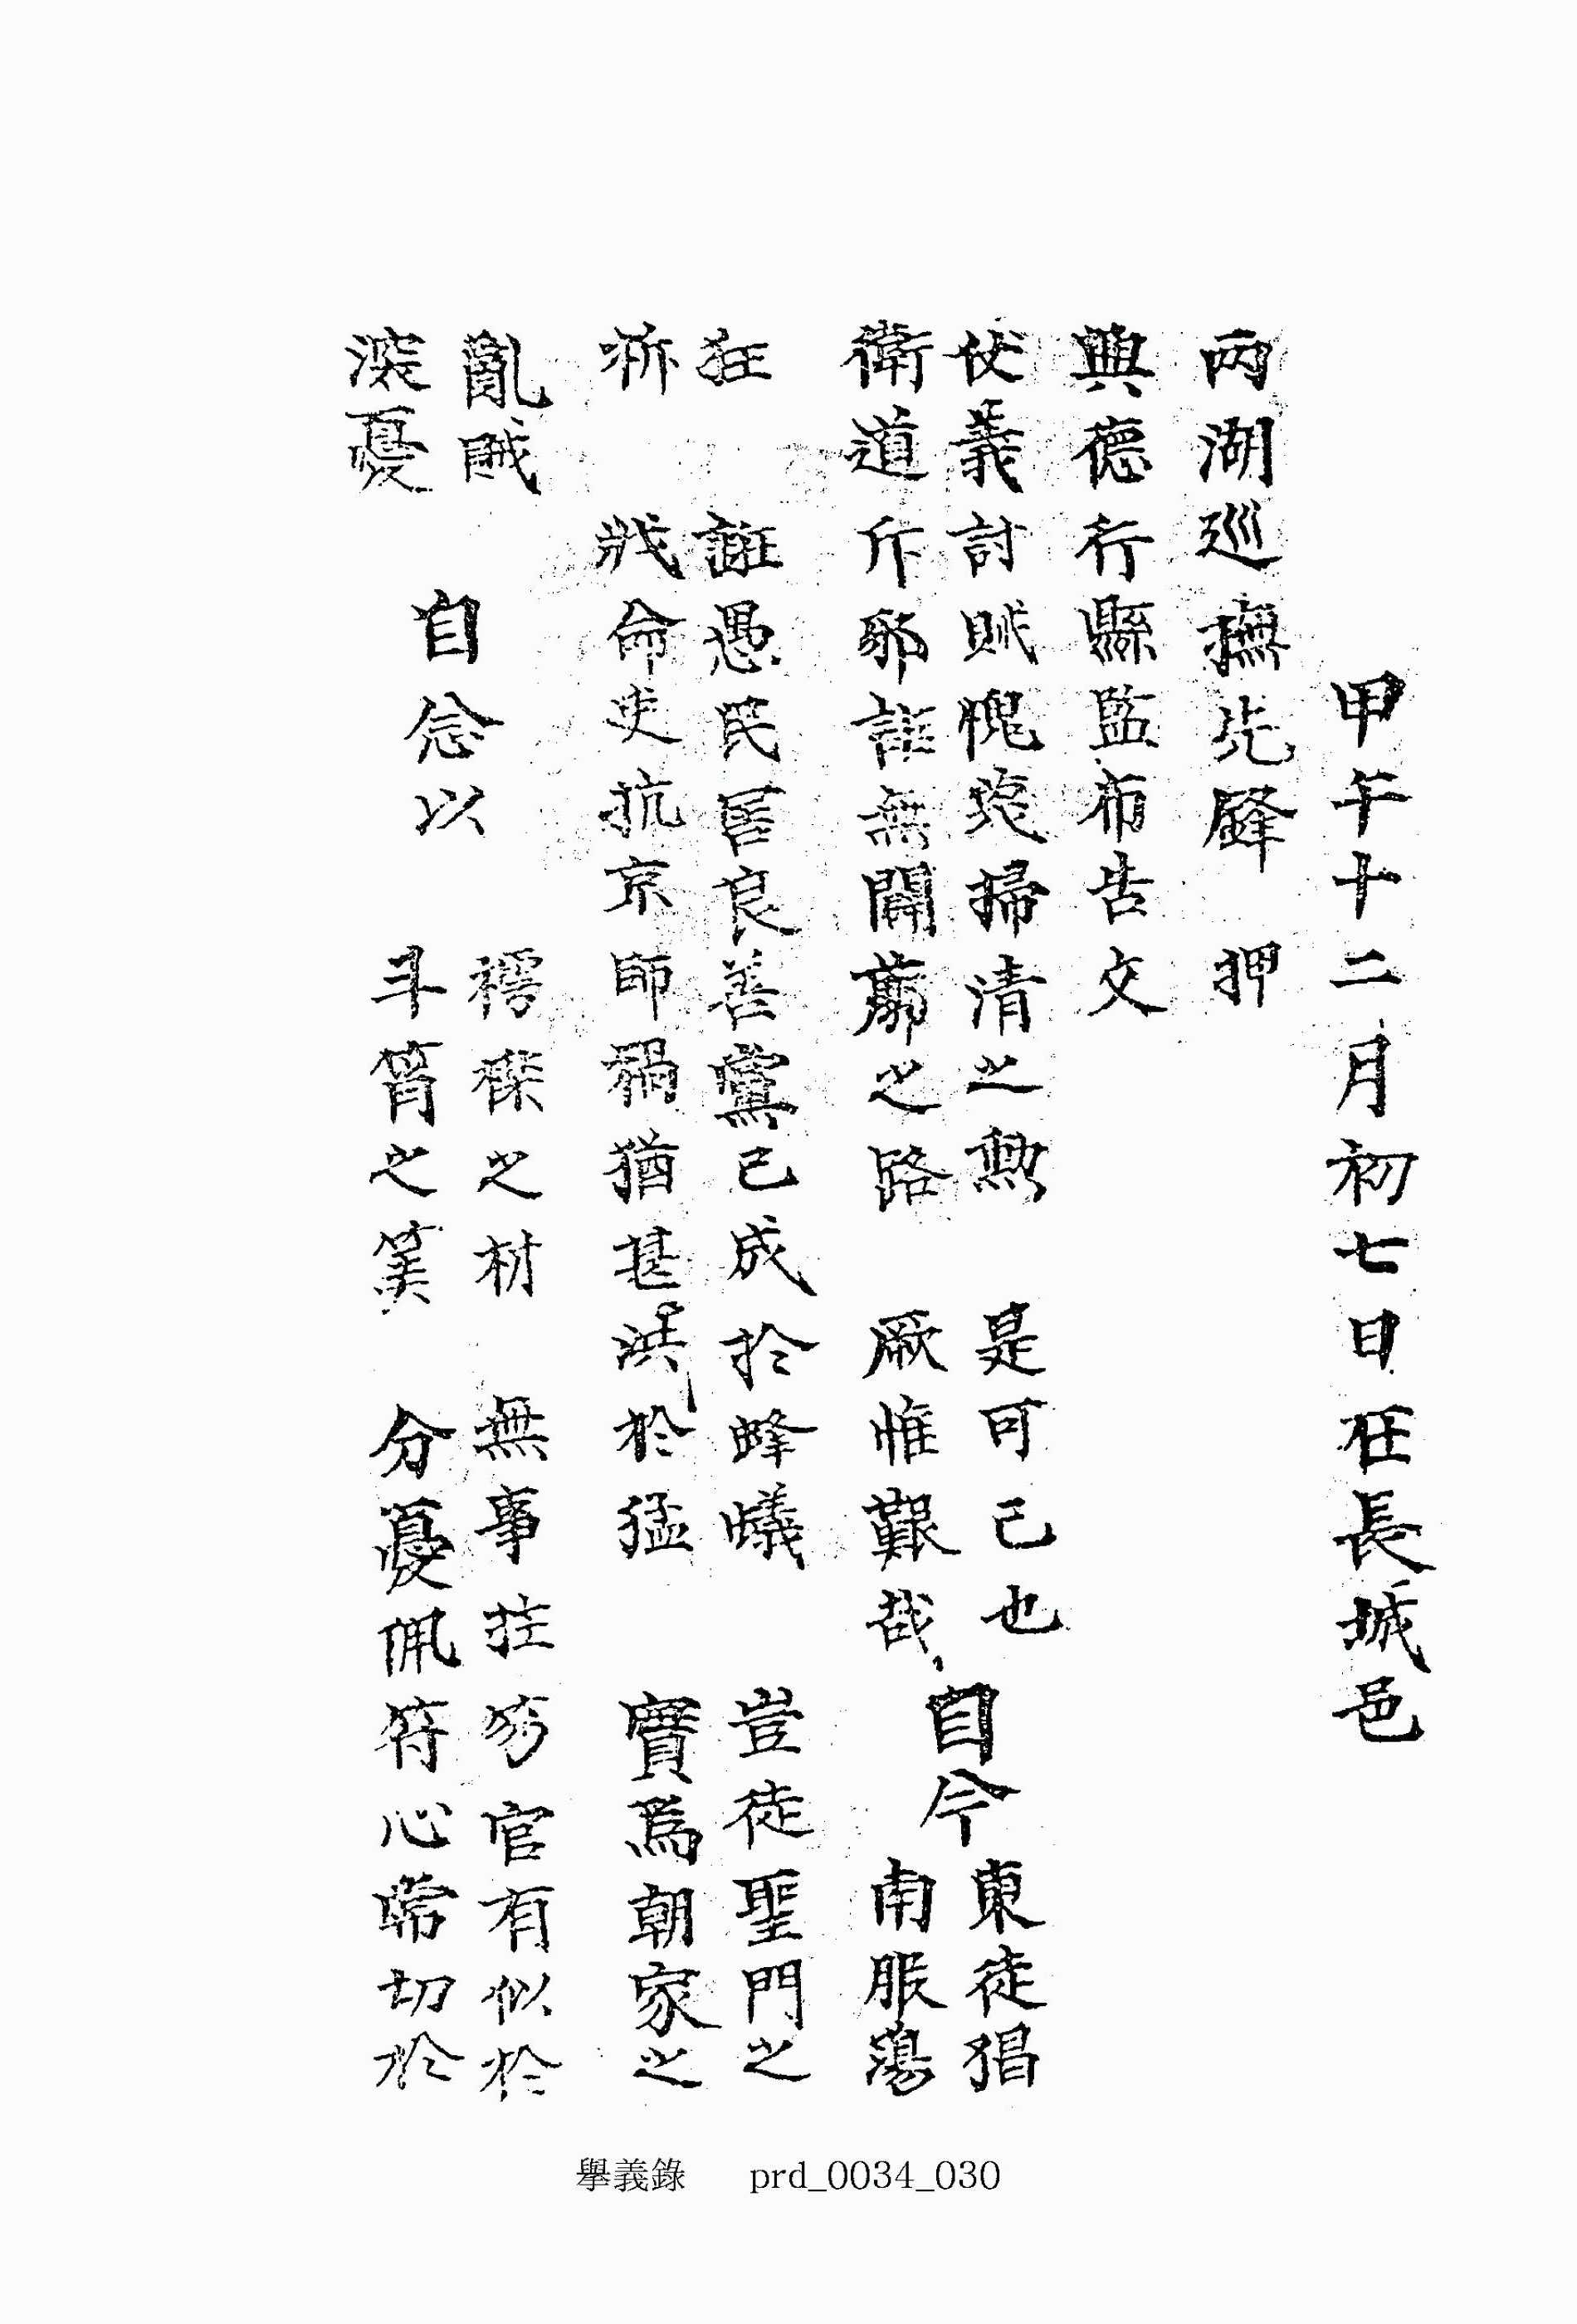 甲午十二月初七日在長城邑
两湖巡撫先鋒 押
興德行縣監布告文
仗義討賊愧莞掃清之勲 是可已也
衛道斥邪詎無闢廓之路 厥惟艱哉
自今
東徒猖
南服蕩
狂 誑愚民罟良善黨已成於蜂蟻 豈徒聖門之
析 戕命吏抗京師禍猶甚洪於猛 實爲朝家之
亂賊
深憂
自念以
樗櫟之材 無事控笏官有似於
斗筲之筭 分憂佩符心常切於
擧義錄 prd_0034_030